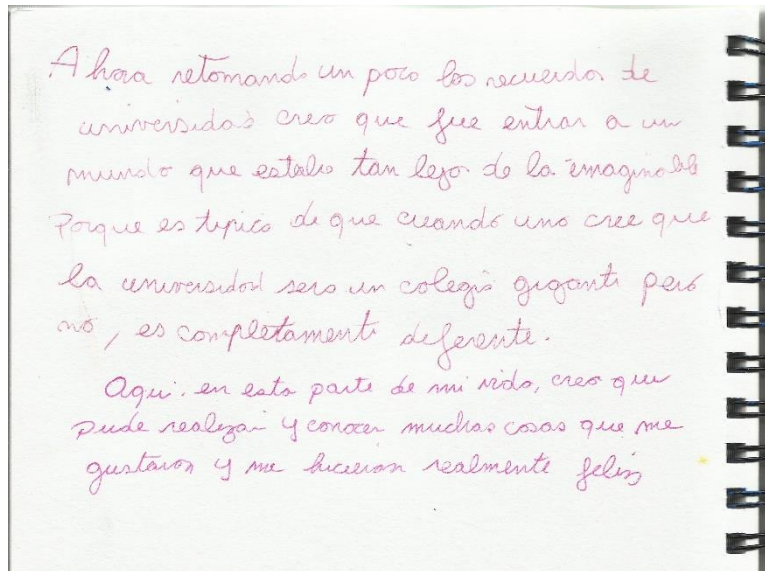 Ahora retomando un poco los recuerdos de
universidad creo que fue entrar a un
mundo que estaba tan lejos de lo imaginable
Porque es tipico de que cuando uno cree que
la universidad sera un colegio gigante pero
no, es completamente diferente.
Aqui. en esta parte de mi vida, creo que
pude realizar y conocer muchas cosas que me
gustaron y me hicieron realmente feliz